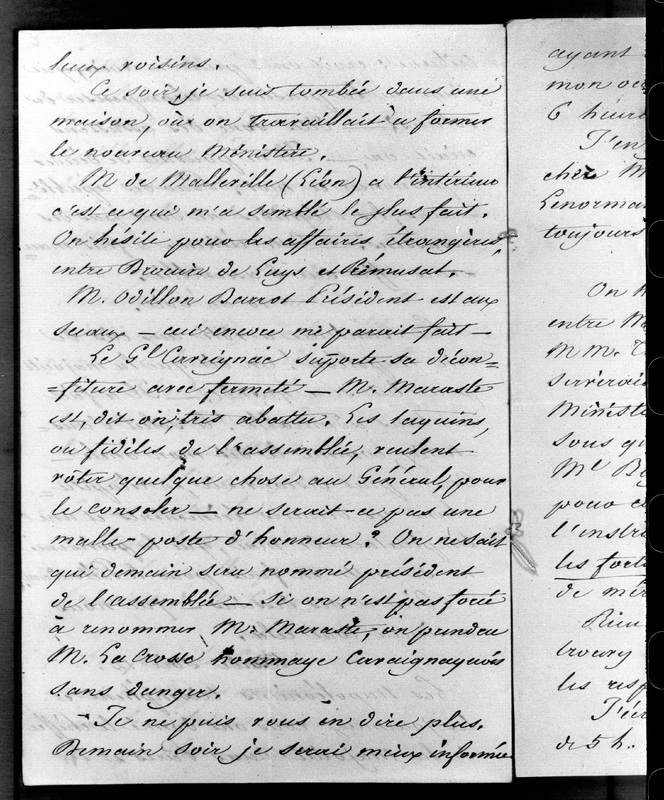 leurs voisins.
Ce soir, je suis tombée dans une
maison, où on travaillait à former
le nouveau Ministère.
M de Malleville (Léon) a l'intérieur
c'est ce qui m'a semblé le plus fait.
On hésite pour les affaires étrangères,
entre Drouin de Luys et Rémusat.
M. Odillon Barrot Président est aux
sceaux — ceci encore me parait fait —
Le Gl Cavaignac supporte sa décon=
=fiture avec fermeté — M. Maraste
est, dit on, très abattu. Les taquins,
ou fidèles de l'assemblée, veulent
voter quelque chose au Général, pour
le consoler — ne serait-ce pas une
malle-poste d'honneur? On ne sait
qui demain sera nommé président
de l'assemblée — si on n'est pas forcé
à renommer Mr Maraste, on prendra
M. La Crosse hommage Cavaignaquois
sans danger.
— Je ne puis vous en dire plus.
Demain soir je serai mieux informée
ayant
mon
6 heures
J'en
cher M
Lenorman
toujours
On
entre
MM.
servirai
Ministè
sous qu
pour
l'instr
les forts
de
Rien
les resp
J'écr
de 5 h.